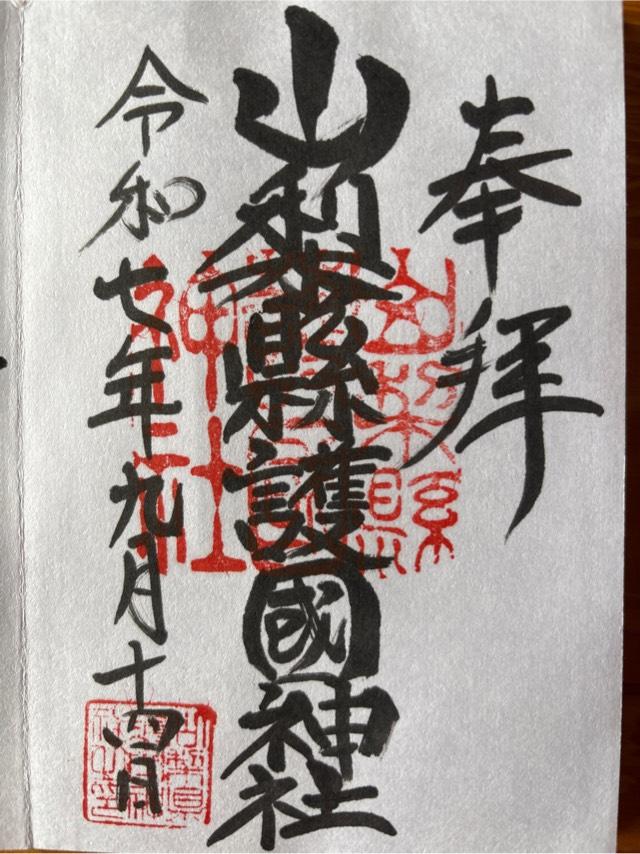 奉拝
山梨縣護國神社
令和七年九月十四日
山梨縣
神社